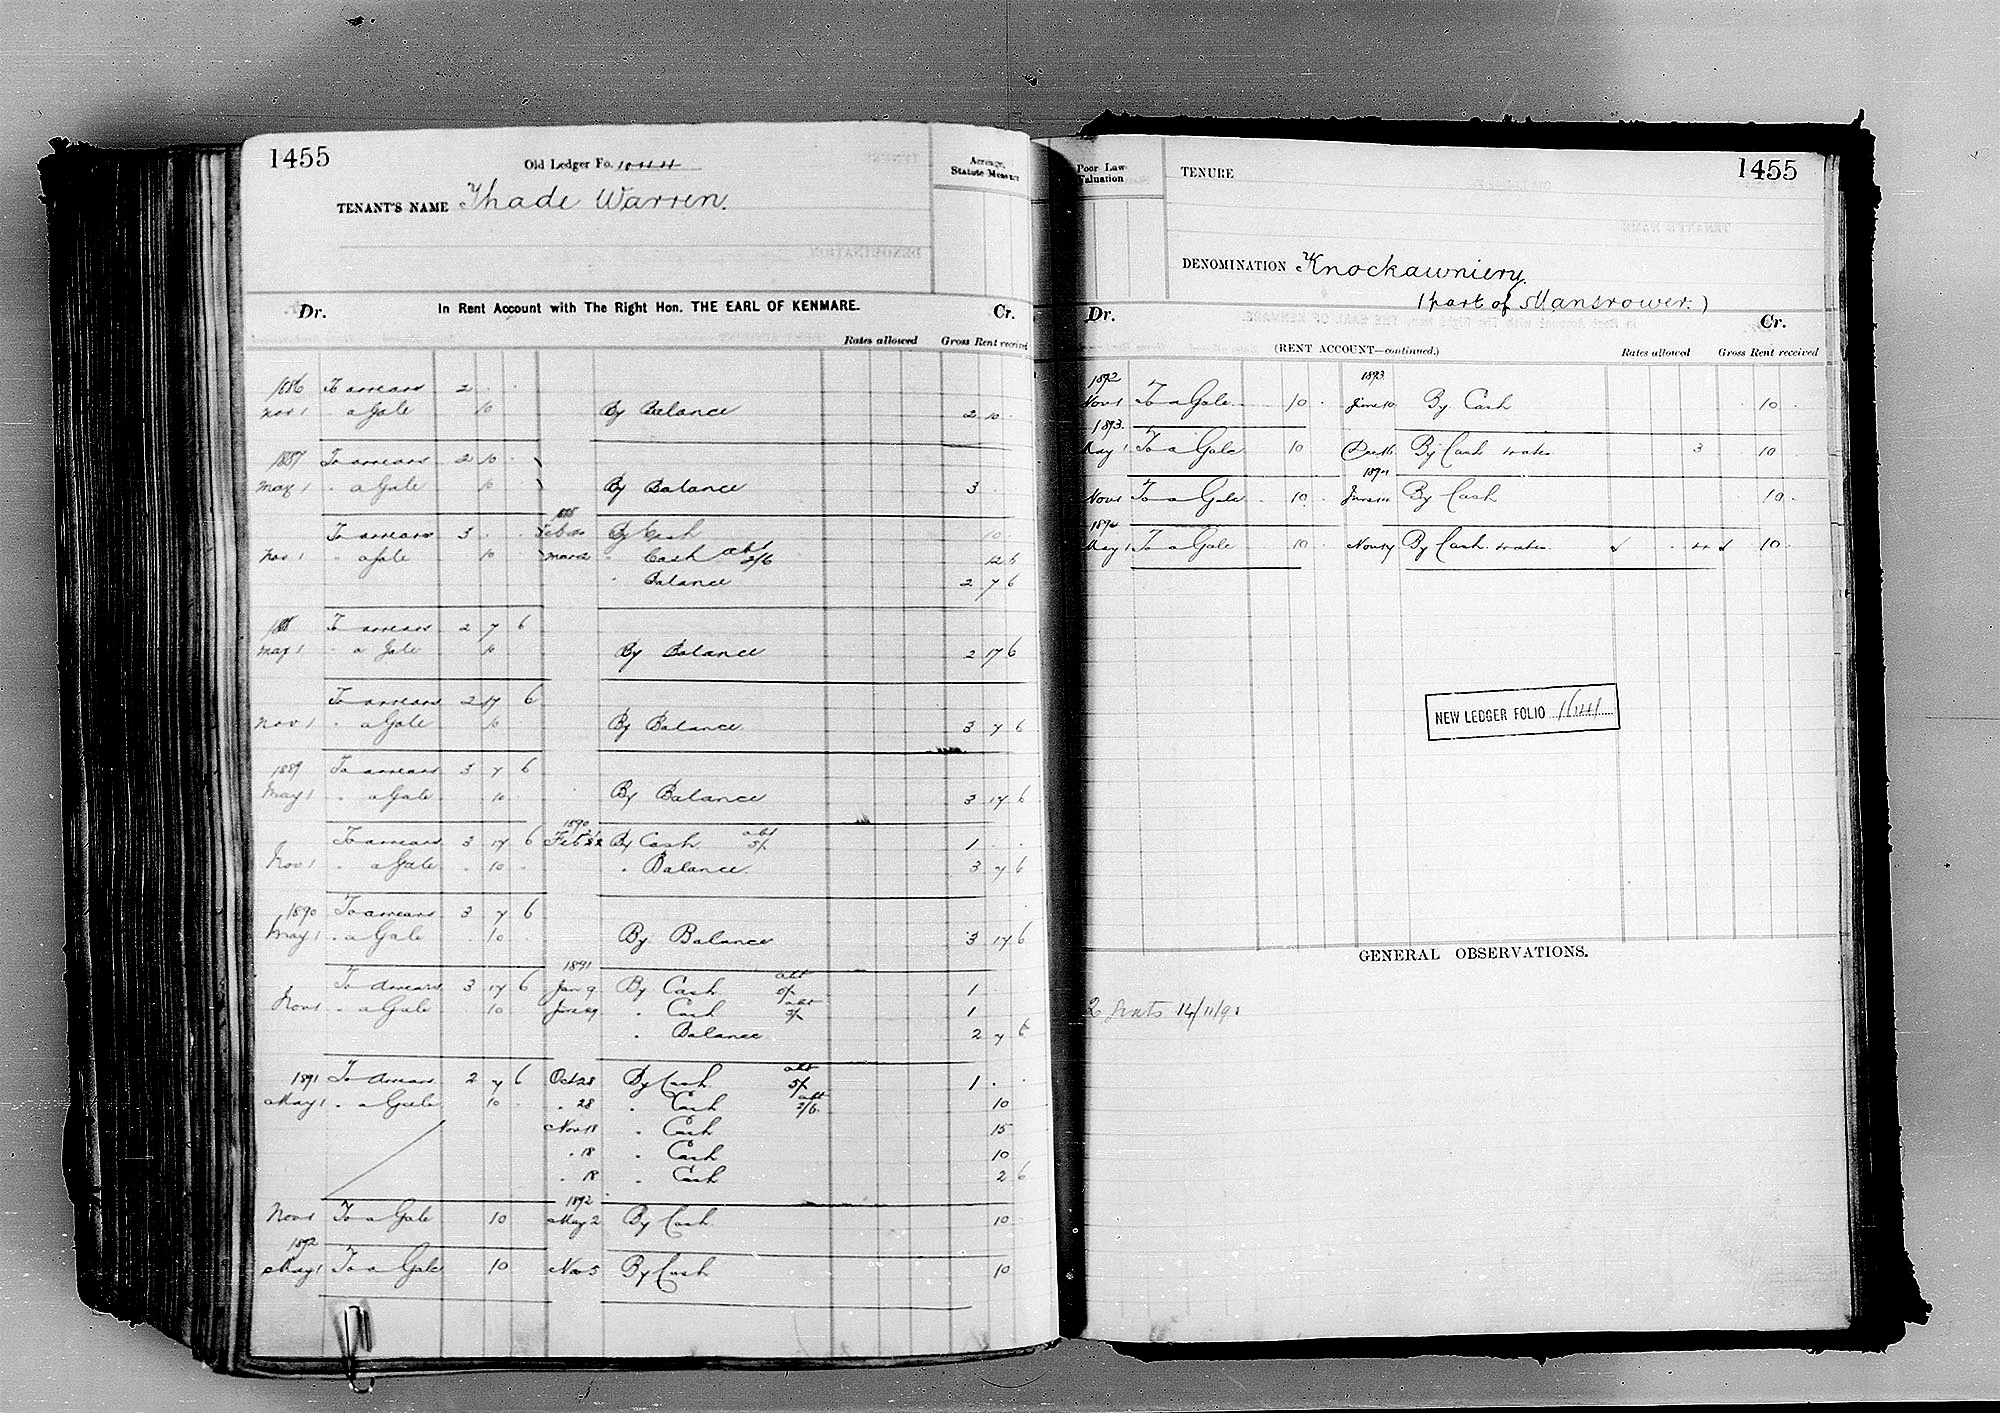 1455
Old Ledger Fo.
TENANT'S NAME Thade Warren.
Acreage, Statute Measure
Dr. In Rent Account with The Right Hon. THE EARL OF KENMARE. Cr.
Rates allowed Gross Rent received
1886 To arrears 2 . .
Nov 1 " a Gale 10 By Balance 2 10 .
1887 To arrears 2 10 .
May 1 " a Gale 10 By Balance 3 .
1888
To arrears 3 . . Feb By Cash 10 .
Nov 1 " a Gale 10 Mar 2 " Cash abt 2/6 12 6
" Balance 2 7 6
1888 To arrears 2 7 6
May 1 " a Gale 10 By Balance 2 17 6
To arrears 2 17 6
Nov 1 " a Gale 10 By Balance 3 7 6
1889 To arrears 3 7 6
May 1 " a Gale 10 By Balance 3 17 6
1890
To arrears 3 17 6 Feb By Cash abt 5/- 1 . .
Nov 1 " a Gale 10 " Balance 3 7 6
1890 To arrears 3 7 6
May 1 " a Gale 10 By Balance 3 17 6
1891
To arrears 3 17 6 Jan 9 By Cash abt 5/- 1 .
Nov 1 " a Gale 10 June " Cash abt 5/- 1
" Balance 2 7 6
1891 To Arrears 2 7 6 Oct 28 By Cash abt 5/- 1 .
May 1 " a Gale 10 " 28 " Cash abt 2/6 10
Nov 18 " Cash 15
" 18 " Cash 10
" 18 " Cash 2 6
1892
Nov 1 To a Gale 10 May 2 By Cash 10
1892
May 1 To a Gale 10 Nov 5 By Cash 10
Poor Law Valuation
TENURE
1455
DENOMINATION Knockawniery
(part of Mansrower.)
Dr. Cr.
(RENT ACCOUNT—continued.)
Rates allowed Gross Rent received
1892 1893
Nov 1 To a Gale 10 . June 10 By Cash 10 .
1893
May 1 To a Gale 10 Dec 16 By Cash & rates 3 10
1894
Nov 1 To a Gale 10 June By Cash 10
1894
May 1 To a Gale 10 Nov 17 By Cash & rates 10
NEW LEDGER FOLIO
GENERAL OBSERVATIONS.
2